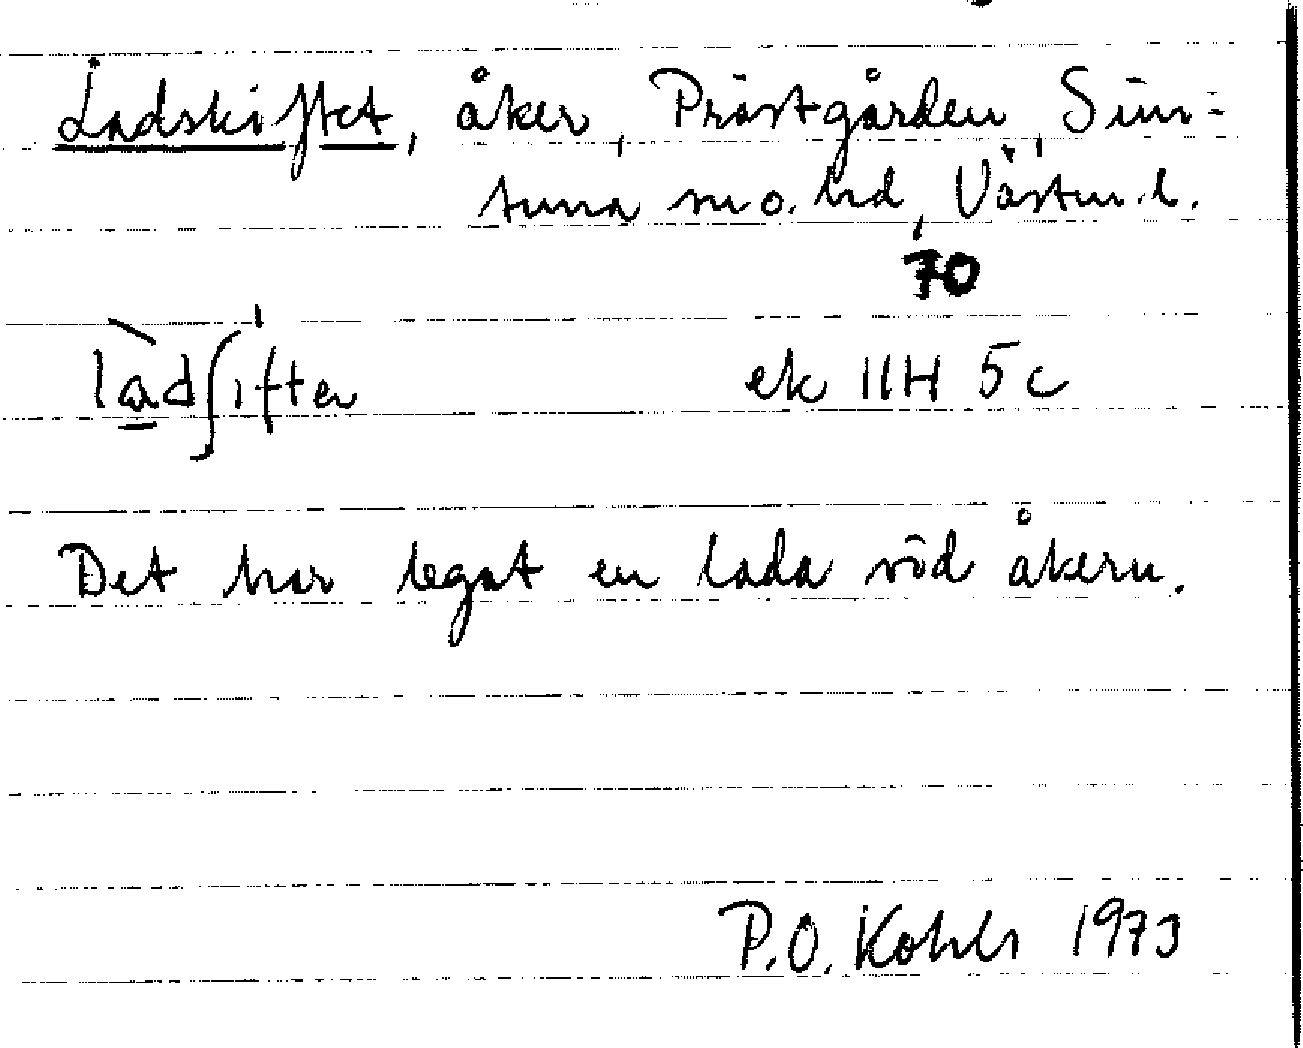 Ladskiftet, åker, Prästgården, Sim-
tuna sn o. hd, Västm.l.
70
la̱dʃiftеn ek IIH 5c
Det har legat en lada vid åkern.
P.O. Kohls 1973